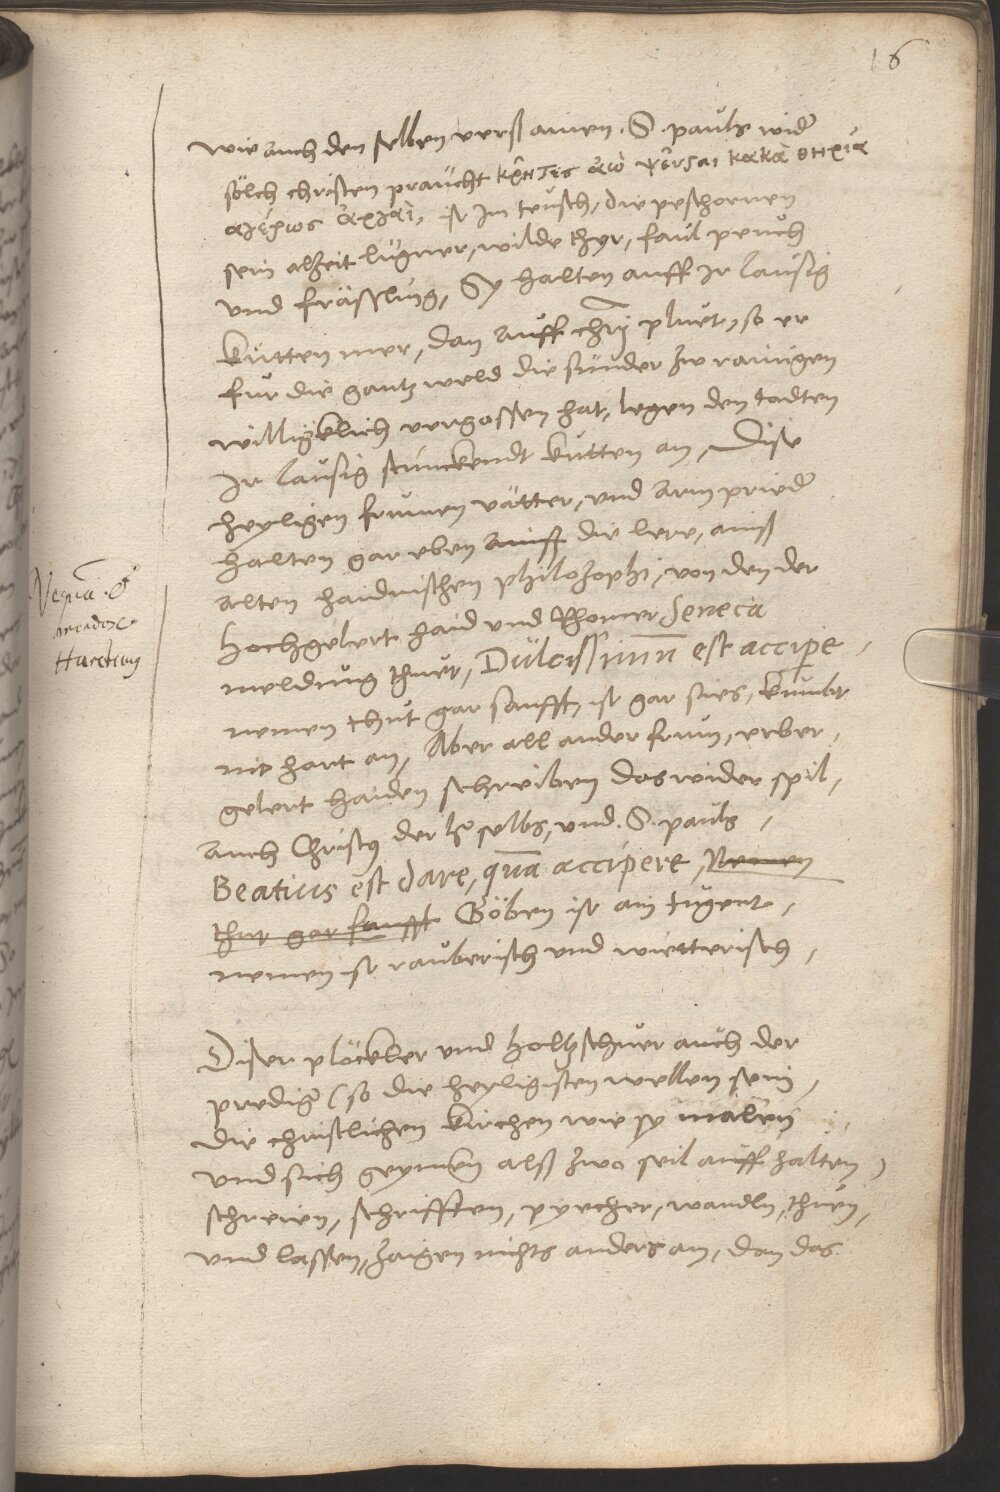 16
wie auch den selben verß ainen .S. pauls wider
sölch christen praucht κρῆτες ἀεὶ ψεῦσται κακὰ θηρία
γαστέρες ἀργαὶ, ist im teusch, die peschornen
sein alzeit lugner, wilde thyr, faul peuch
und frässling, Sy halten auff ir lausig
kutten mer, dan auff chrī pluet, so er
fur die gantz weld die sunder zw rainigen
williklich vergossen hat, legen den todten
Ir lausig stinckendt kutten an, Dise
heyligen frumen vätter, und arm prüeder
halten gar eben auff die lere, ainß
alten haidnischen philosophi, von dem der
hochgelert haid und Rhomer Seneca
meldung thuet, Dulcissimum est accipere
nemen thut gar sanfft, ist gar sues, kumbt
nit hart an, Aber all ander frum, erber,
gelert haiden schreiben das wider spil,
auch Christus der her selbs, und .S. pauls,
Beatius est dare, quam accipere, Nemen
thut gar sanfft Göben ist ain tugent,
nemen ist rauberisch und wietterisch,
Diser plöckker und holtzschuer auch der
prediger (so die heyligisten wellen sein,
die christlichen kirchen wie sy malen
und sich hymel alß zwo seil auff halten)
schreien, schrifften, pyecher, wandln, thuen,
und lassen, zaigen nichts anders an, dan das